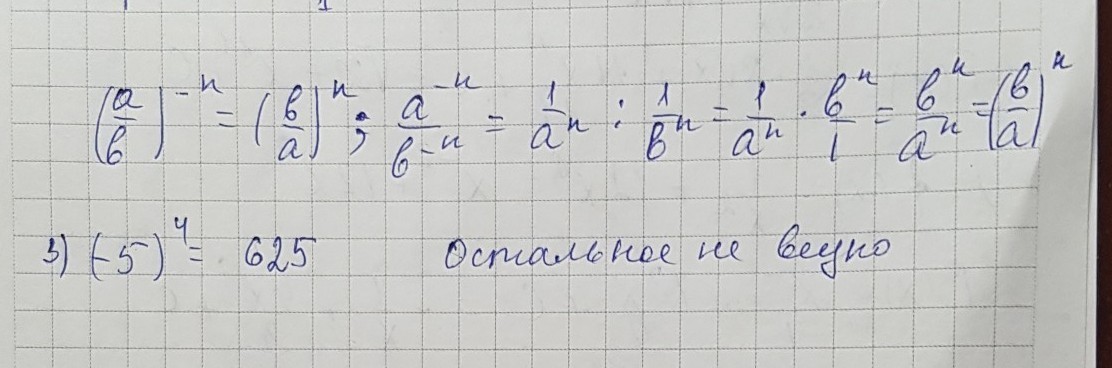 (a/в)^-n = (в/a)^n ; a^-n/в^-n = 1/a^n : 1/в^n = 1/a^n · в^n/1 = в^n/a^n = (в/a)^n
3) (-5)^4 = 625 Остальное не верно